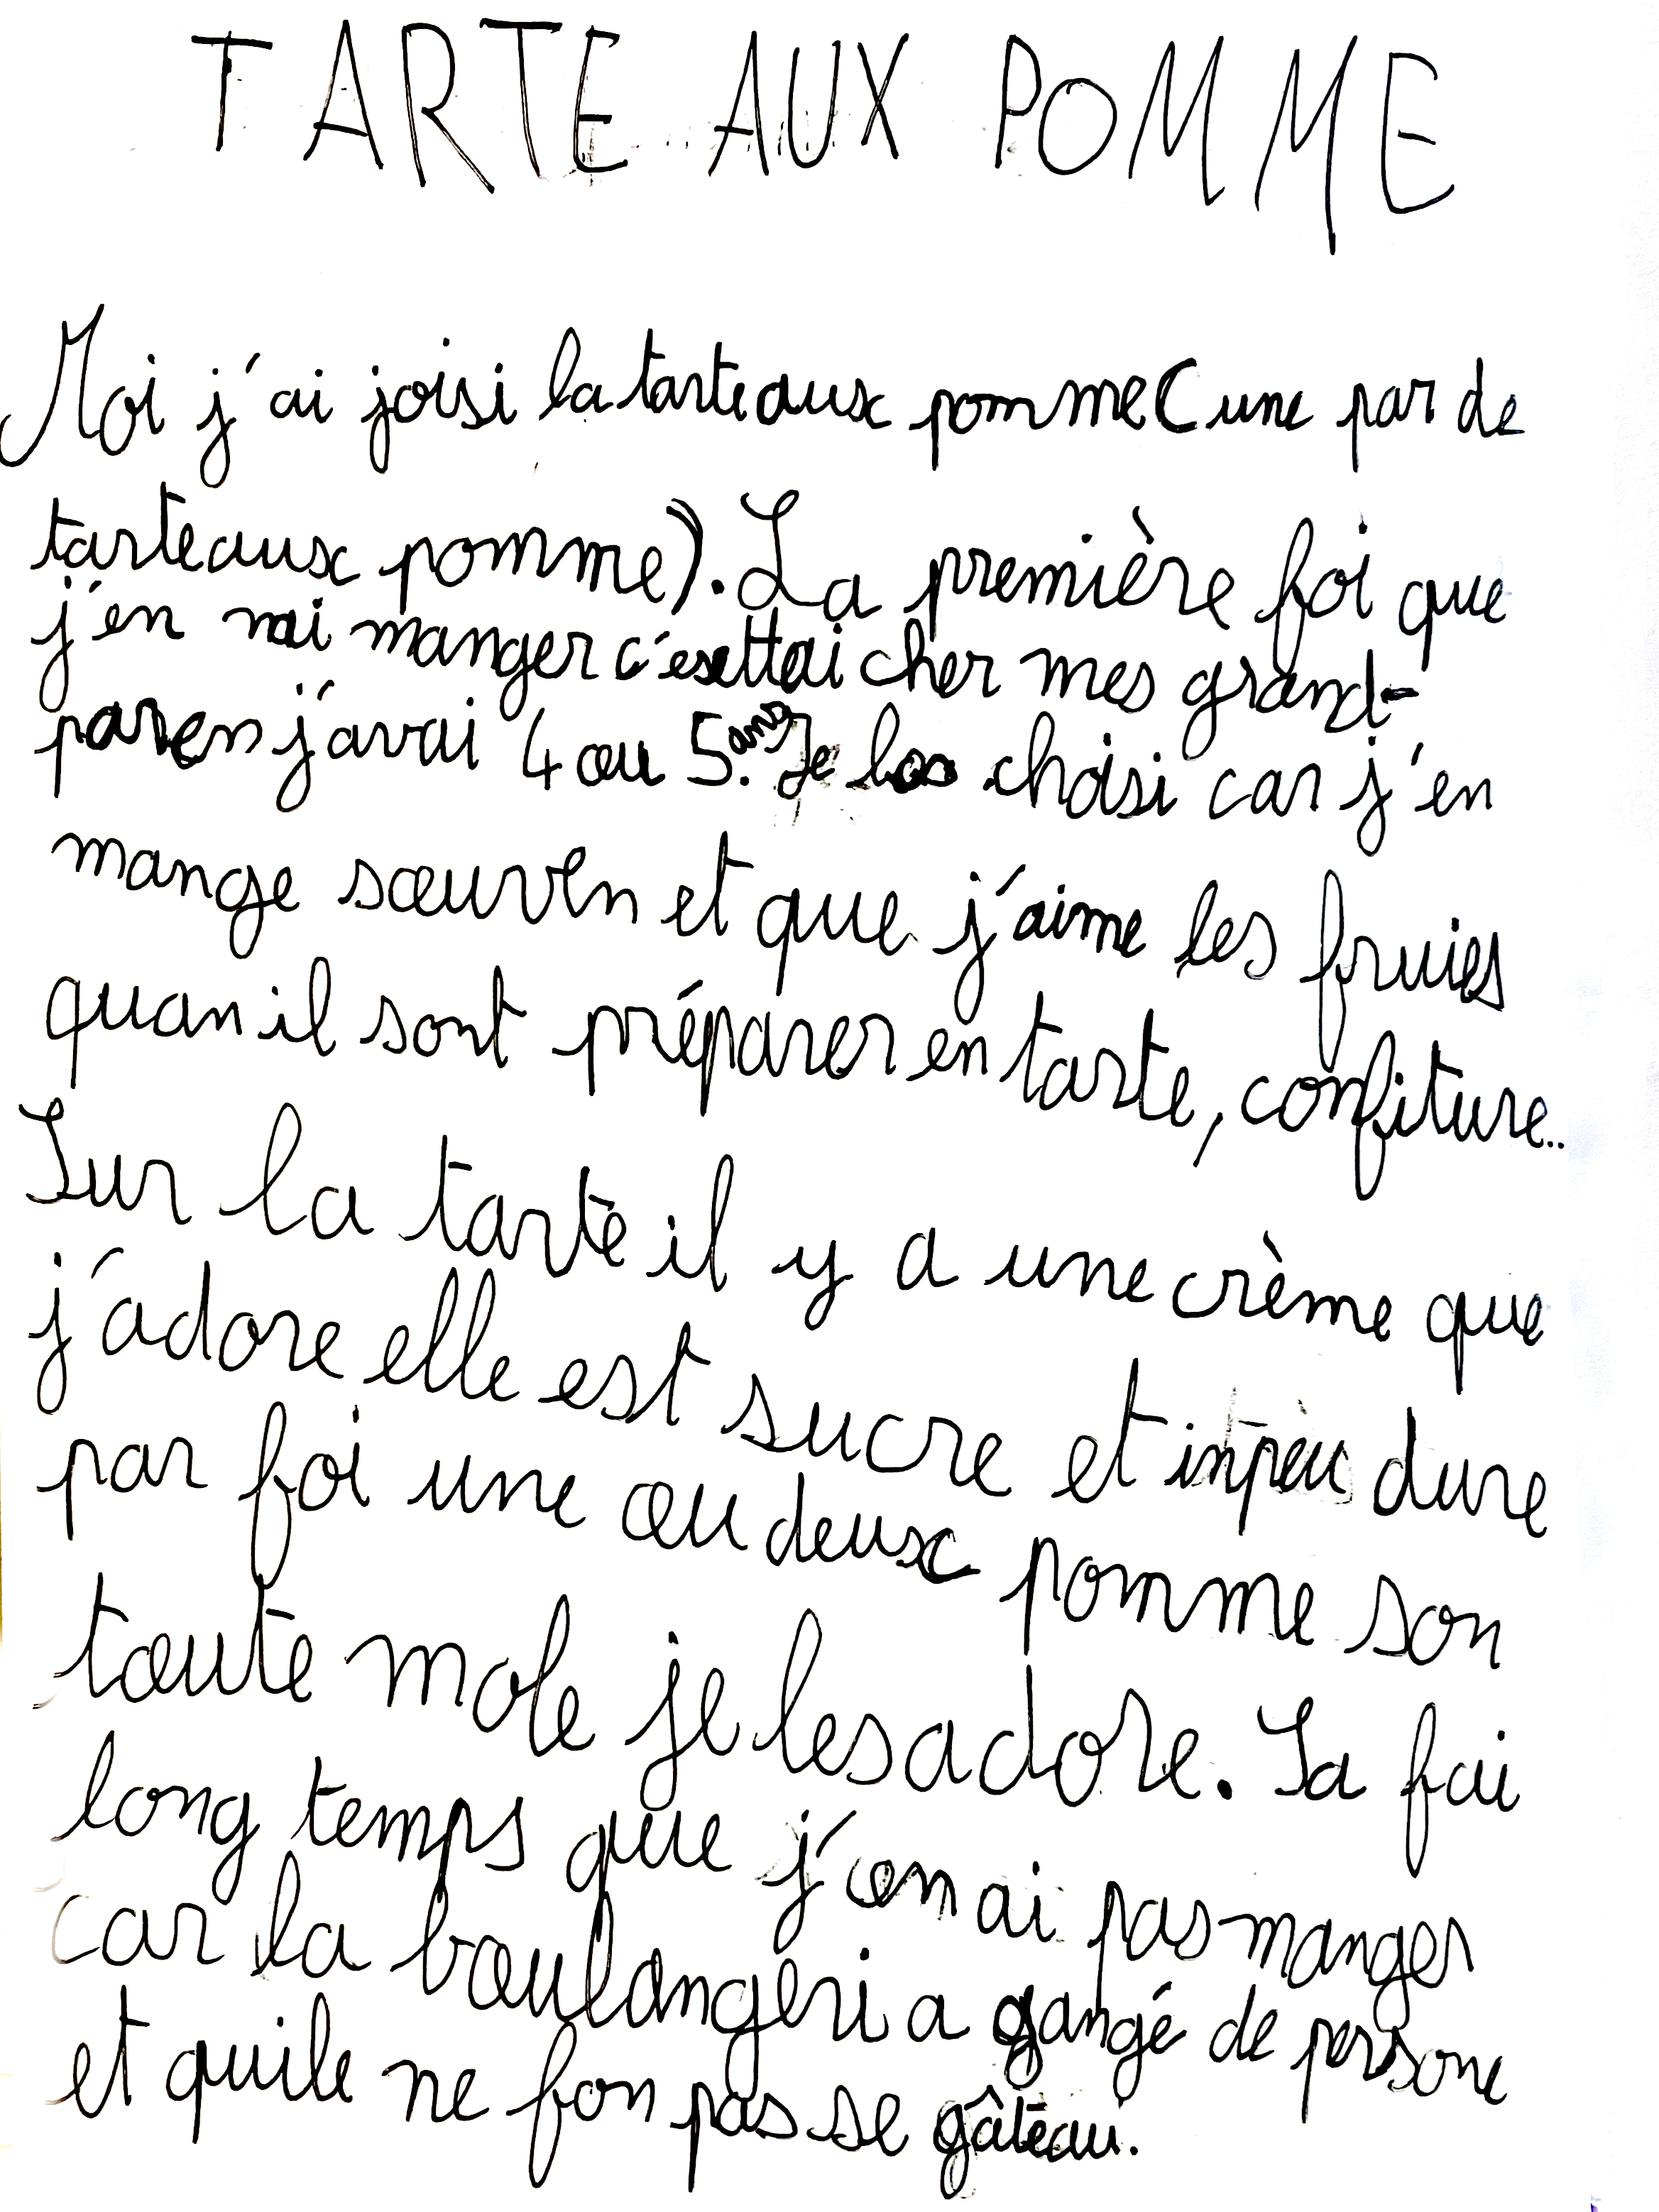 TARTE AUX POMME
Moi j'ai joisi la tarte aux pomme (une par de
tarte aux pomme). La première foi que
j'en nai manger c'esttai cher mes grand-
paren j'avai 4 ou 5 ans. Je choisi car j'en
mange souven et que j'aime les fruies
quan il sont préparer en tarte, confiture..
Sur la tarte il y a une crème que
j'adore elle est sucre et inpeu dure
par foi une ou deux pomme son
toute mole je les adore. Sa fai
long temps que j'en ai pas manger
car la boulangeri a gangé de persone
et quile ne fon pas se gâteau.